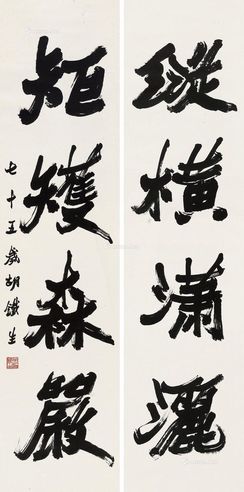 縱橫瀟灑
矩矱森嚴
七十五歲胡鐵生